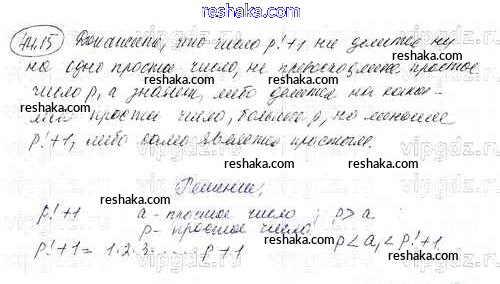 reshaka.com
44.15 Докажите, что число p!+1 не делится ни
на одно простое число, не превосходящее простое
число p, а значит, либо делится на какое-
либо простое число, большее p, но меньшее
p!+1, либо само является простым.
reshaka.com reshaka.com reshaka.com
Решение:
p!+1 a - простое число ; p>a
p - простое число
p!+1 = 1·2·3· ... p+1 p<a₁<p!+1
reshaka.com reshaka.com reshaka.com